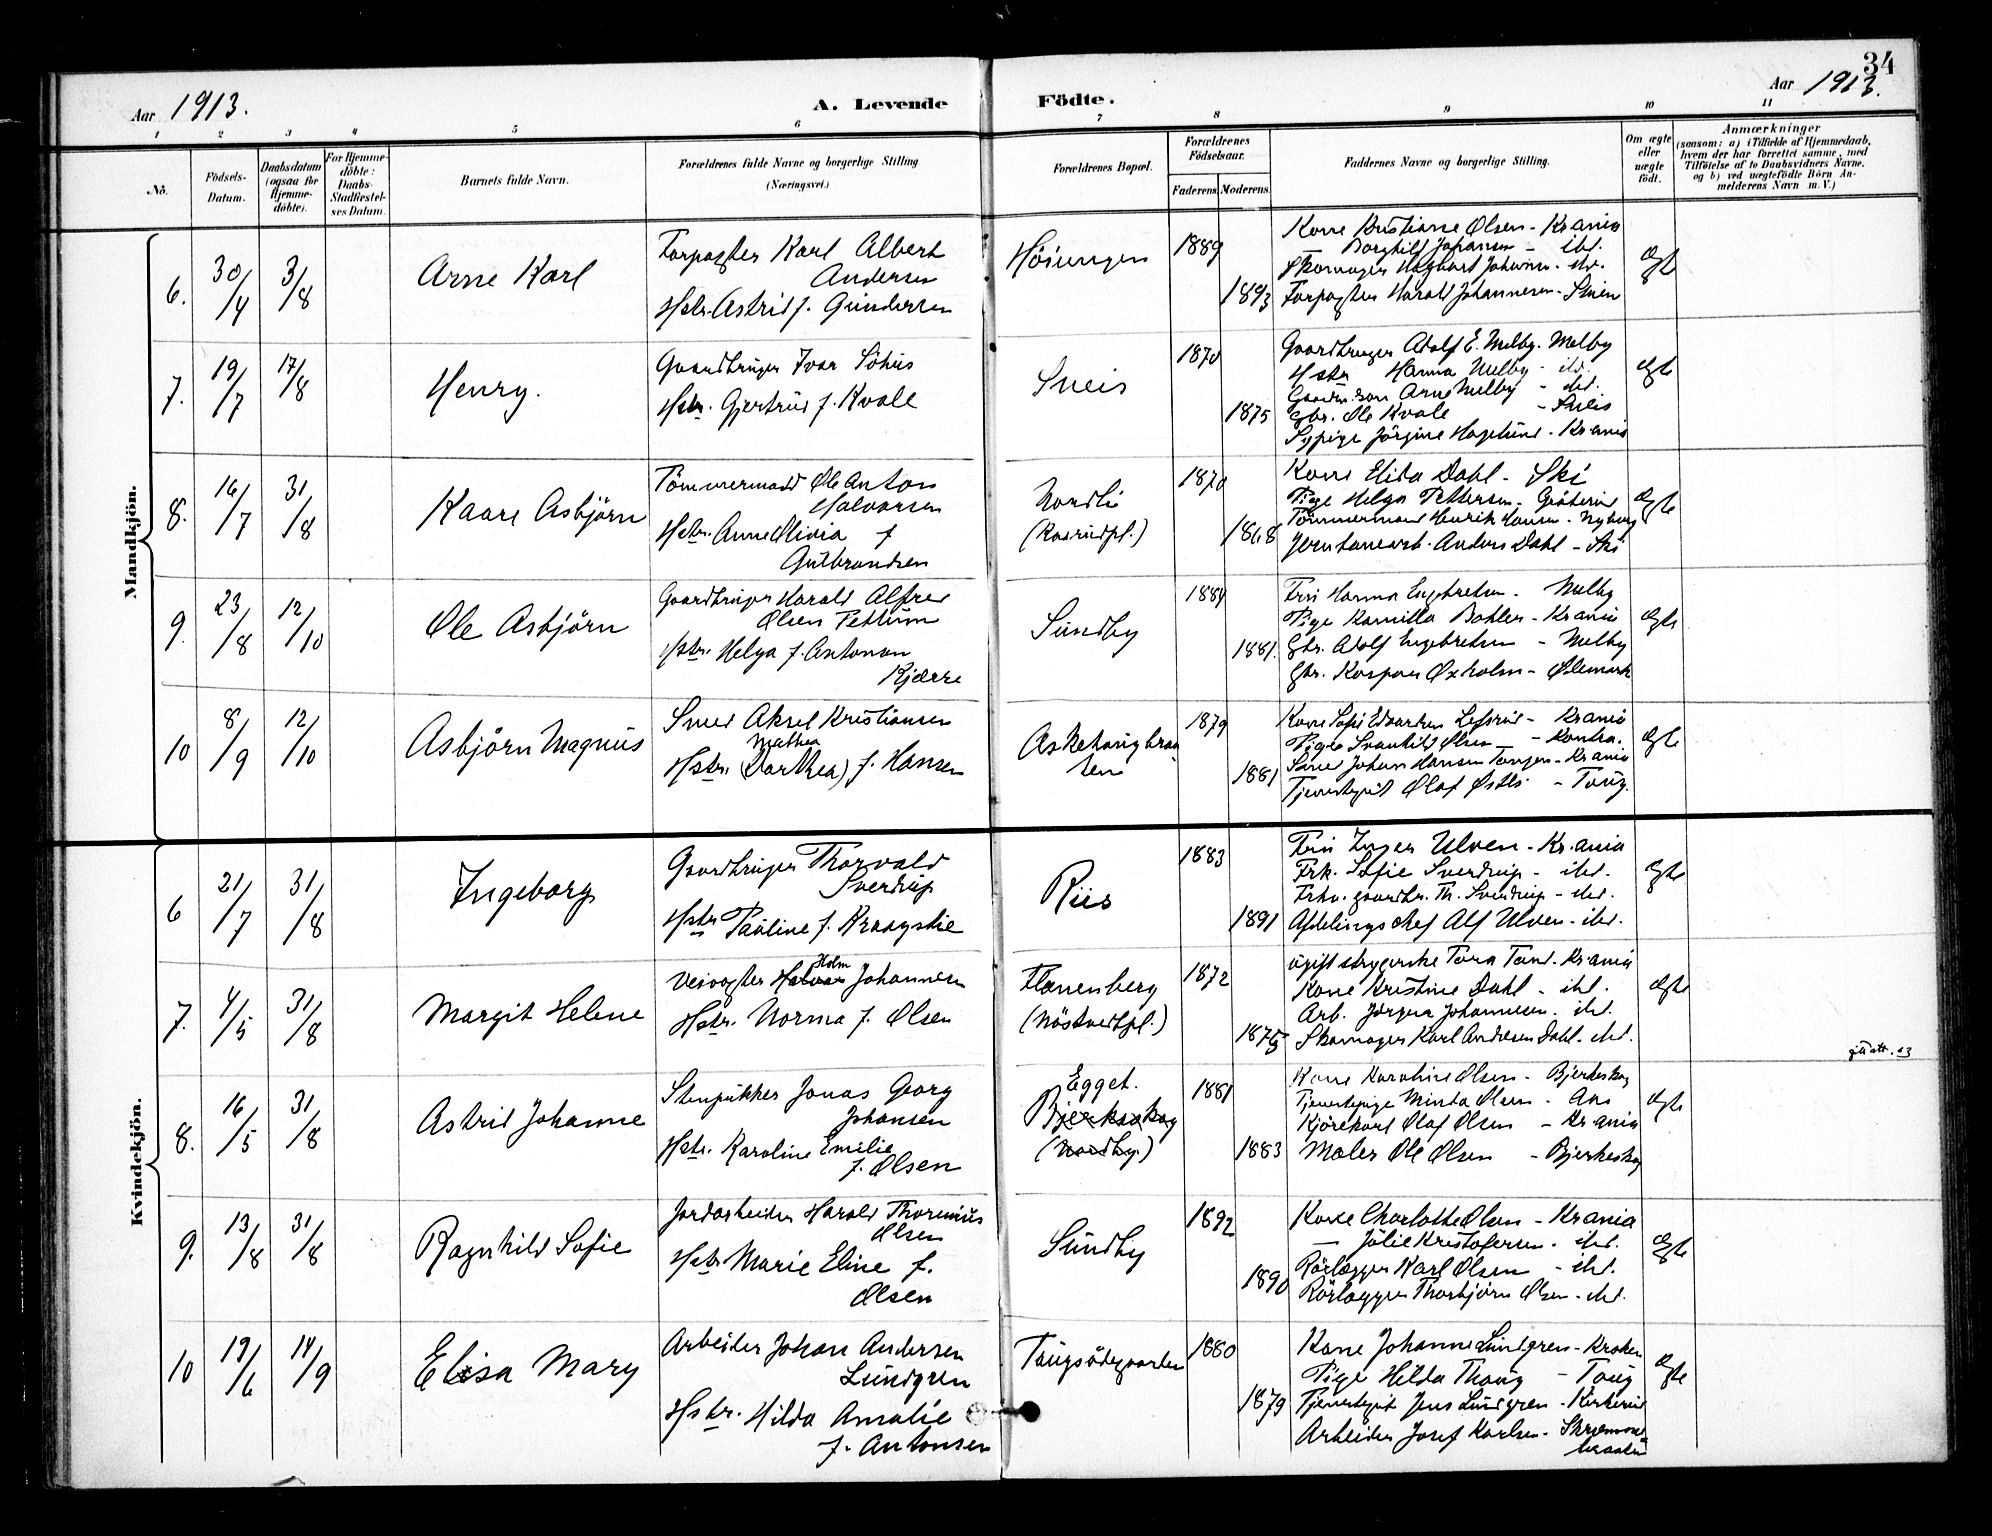 34
Aar 1913.
A. Levende Födte.
Aar 1913.
1 2 3 4 5 6 7 8 9 10 11
No.
Födsels-Datum.
Daabsdatum (ogsaa for Hjemme-döbte).
For Hjemme-döbte: Daabs-Stadfæstel-ses Datum.
Barnets fulde Navn.
Forældrenes fulde Navne og borgerlige Stilling.
(Næringsvei.)
Forældrenes Bopæl.
Forældrenes Födselsaar.
Faderens. Moderens.
Faddernes Navne og borgerlige Stilling.
Om ægte eller uægte födt.
Anmærkninger
(saasom: a) i Tilfælde af Hjemmedaab, hvem der har forrettet samme, med Tilföielse af to Daabsvidners Navne, og b) ved uægtefödte Börn An-melderens Navn m. V.)
Mandkjön.
6. 30/4 3/8 Arne Karl
Forpagter Karl Albert
Andersen
Hstr. Astrid f. Gundersen
Höiungen
1889
1893
Kone Kristiane Olsen - Krania
— Borghild Johansen - ibd.
Skomager Hagbart Johans. - ibd.
Forpagter Harald Johannesen - Skien
Ægte
7. 19/7 17/8 Henry.
Gaardbruger Ivar Söhus
Hstr. Gjertrud f. Kvale
Sneis
1870
1875
Gaardbruger Adolf E. Melby. Melby
Hstr Hanna Melby - ibd.
Gaardm.søn Arne Melby - ibd.
Gbr. Ole Kvale - Sneis
Sypige Jörgine Haglund - Krania
Ægte
8. 16/7 31/8 Kaare Asbjörn
Tömmermand Ole Anton
Halvorsen
Hstr. Anne Olivia f
Gulbrandsen
Nordli
(Kasrudpl.)
1870
1868
Kone Elida Dahl - Ski
Pige Helga Pettersen - Gröterud
Tömmermand Henrik Hansen - Nyborg
Jernbanearb. Anders Dahl - Ski
Ægte
9. 23/8 12/10 Ole Asbjörn
Gaardbruger Harald Alfred
Olsen Pettum
Hstr. Helga f. Antonsen
Kjærre
Sundby
1884
1881.
Fru Hanna Engebretsen - Melby
Pige Kamilla Bohler - Krania
Gbr. Adolf Engebretsen - Melby
Gbr. Kaspar Oxholm - Ølemark
Ægte
10 8/9 12/10 Asbjörn Magnus
Smed Aksel Kristiansen
Mathea
Hstr. (Dorthea) f. Hansen
Askehaugbraa-
ten
1879
1881
Kone Sofie Edvardsen Lefsrud - Krania
Pige Svanhild Olsen - Kontra.
Smed Johan Hansen Tangen - Krania
Tjenestegut Olaf Østli - Taug.
Ægte
Kvindekjön.
6 21/7 31/8 Ingeborg
Gaardbruger Thorvald
Sverdrup
Hstr Pauline f. Kraagstie
Riis
1883
1891
Fru Inger Ulven - Kr.ania
Frk. Sofie Sverdrup - ibd.
Frhv. gaardbr. Th. Sverdrup - ibd.
Afdelingschef Alf Ulven - ibd.
Ægte
7. 4/5 31/8 Margit Helene
Holm
Veivogter Halvor Johannesen
Hstr. Norma f. Olsen
Flanenberg
(Nöstvedtpl.)
1872
1875
ugift strygerske Tora Tand. Krania
Kone Kristine Dahl - ibd.
Arb. Jörgen Johannesen. ibd.
Skomager Karl Andersen Dahl - ibd.
Ægte
8. 16/5 31/8 Astrid Johanne
Stenpukker Jonas Georg
Johansen
Hstr. Karoline Emilie
f. Olsen
Egget.
Bjerkeskog
(Nordby.)
1881
1883
Kone Karoline Olsen - Bjerkeskog
Tjenestepige Minda Olsen - Aas
Kjörekarl Olaf Olsen - Krania
Maler Ole Olsen - Bjerkeskog
Ægte
9. 13/8 31/8 Ragnhild Sofie
Jordarbeider Harald Thorenius
Olsen
Hstr Marie Eline f.
Olsen
Sundby
1892
1890
Kone Charlotte Olsen - Krania
— Julie Kristofersen - ibd.
Rörlægger Karl Olsen - ibd.
Rörlægger Thorbjörn Olsen - ibd.
Ægte
10 19/6 14/9 Elisa Mary
Arbeider Johan Andersen
Lundgren
Hstr. Hilda Amalie
f. Antonsen
Taugsödegaarden
1880
1879
Kone Johanne Lundgren - Kroken
Pige Hilda Thaug - Taug
Tjenestegut Jens Lundgren - Kirkerud
Arbeider Josef Karlsen - Skræmme-
braaten
Ægte